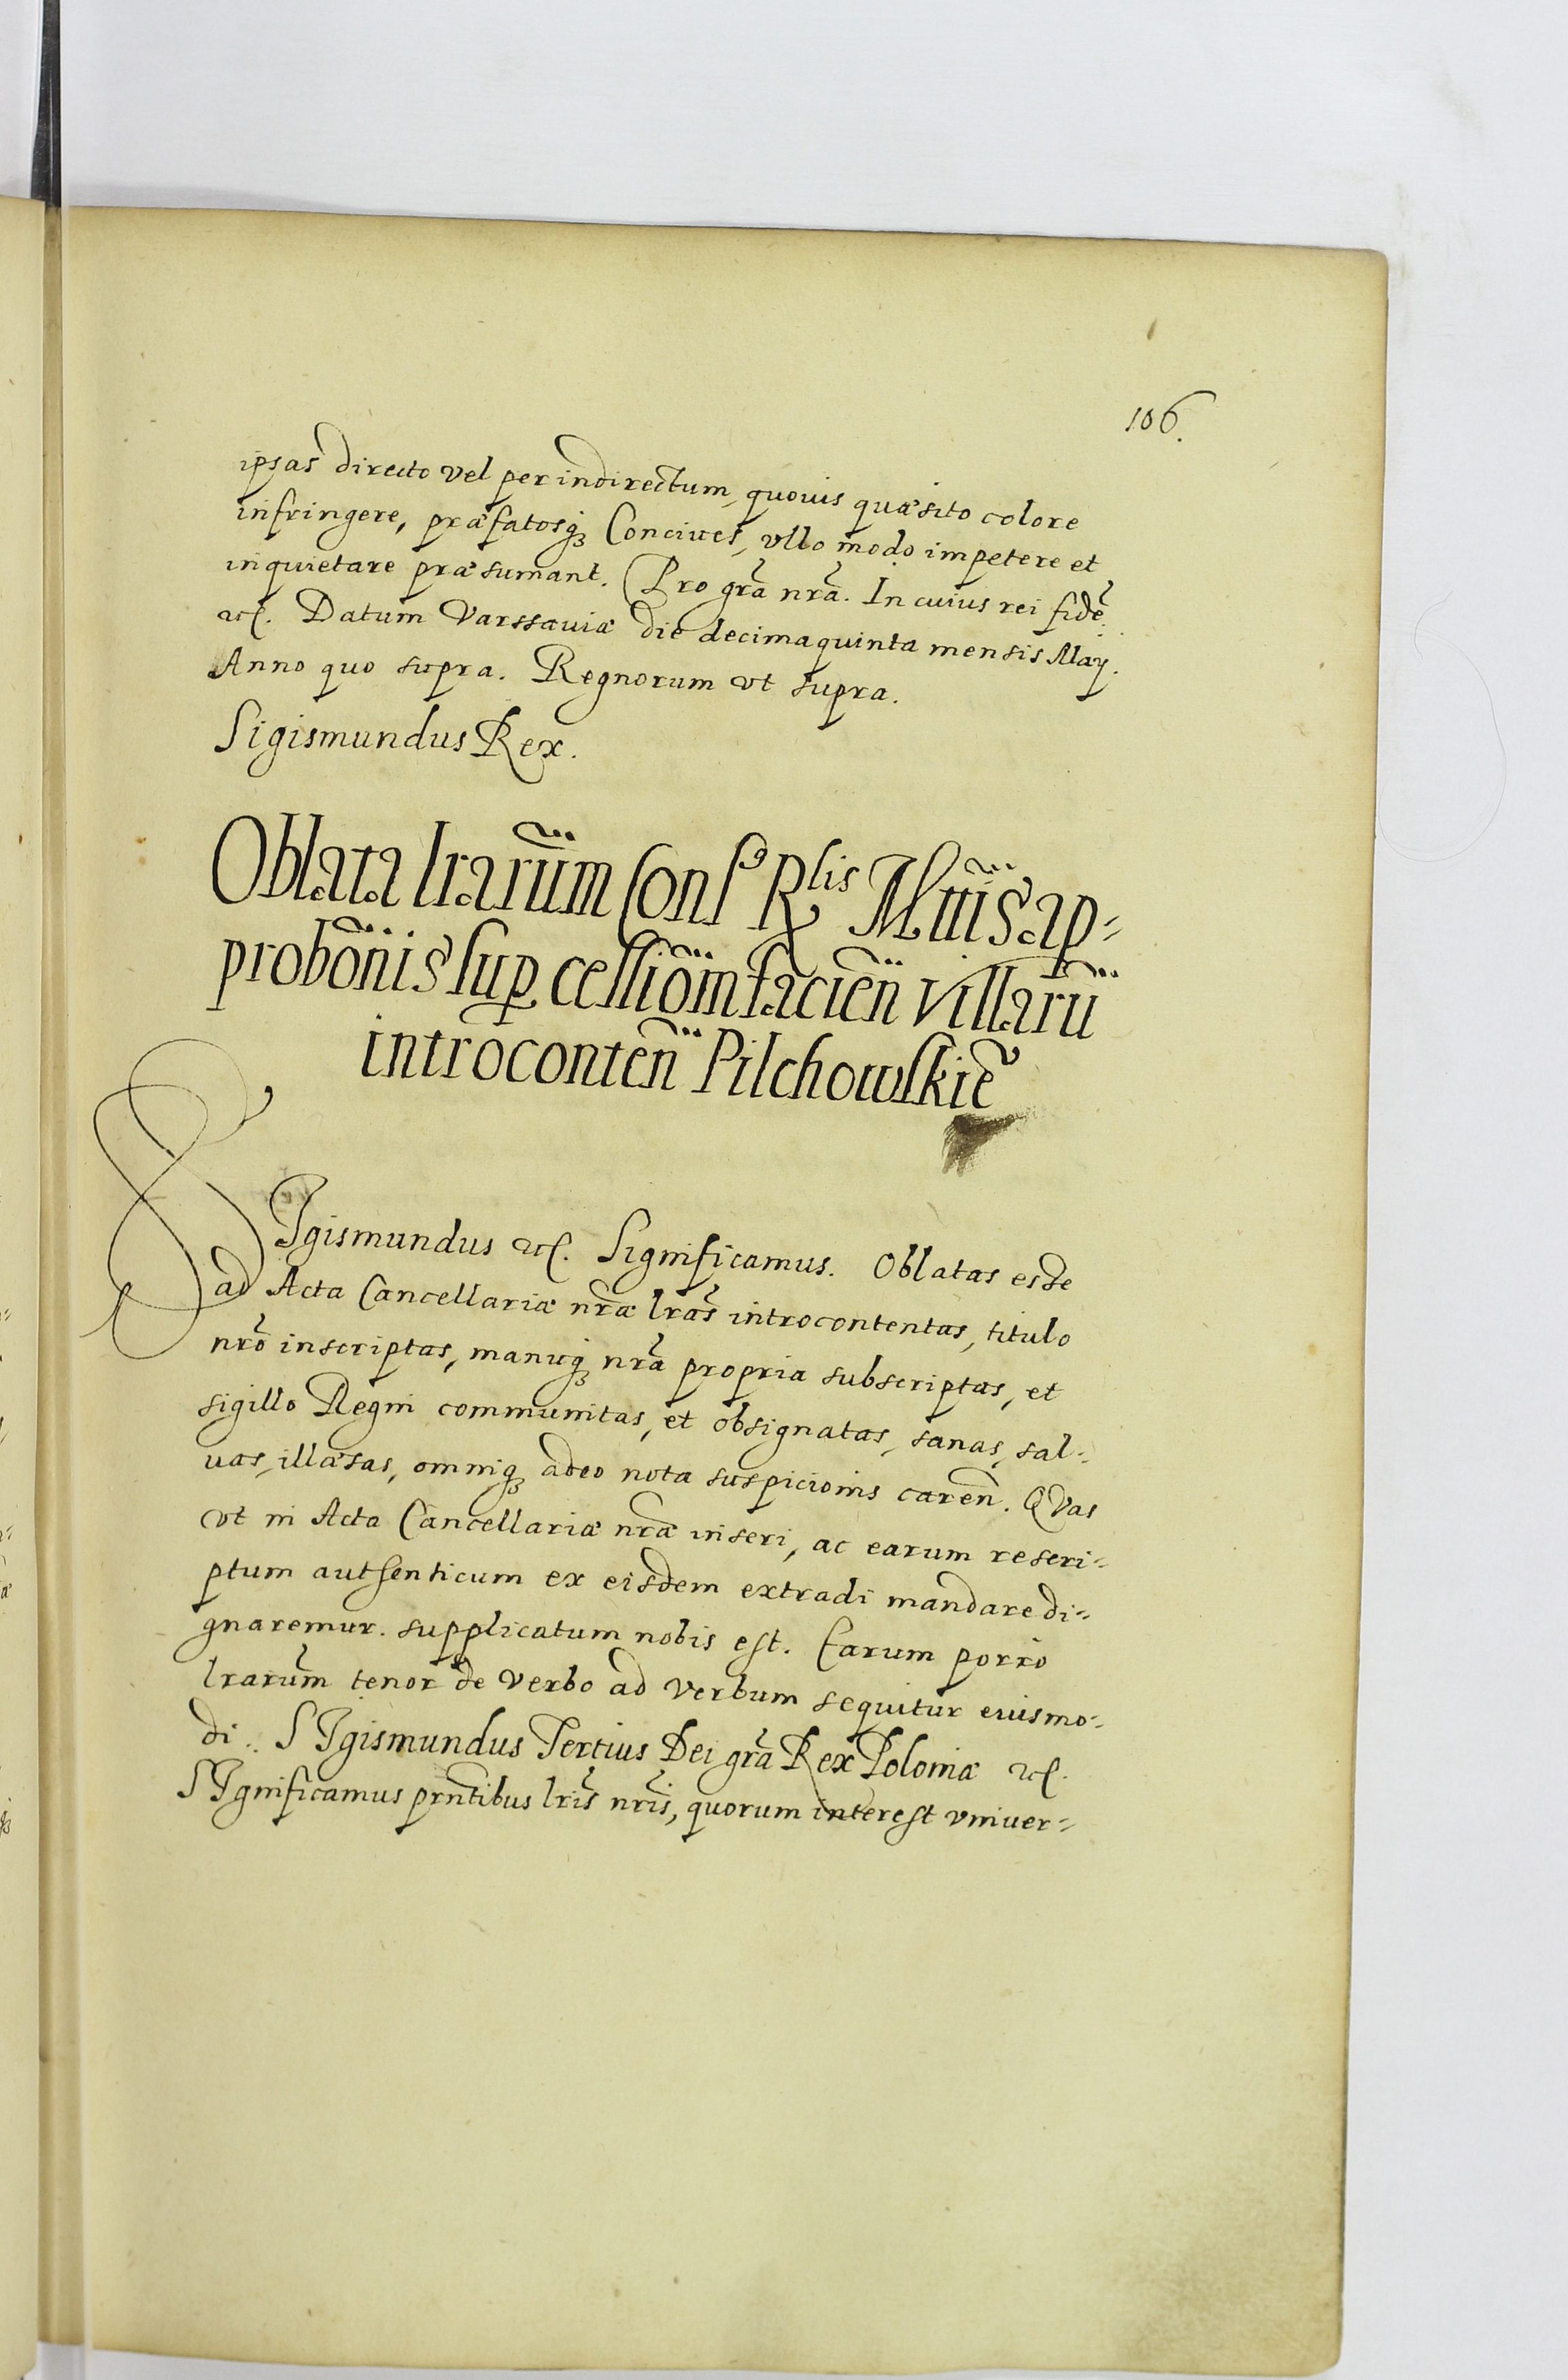 106.
ipsas directo vel per indirectum, quouis quæsito colore
infringere, præfatosq3 Conciues, vllo modo impetere et
inquietare præsumant. Pro gr̃a nr̃a. In cuius rei fidẽ
etc. Datum Varssauiæ die decimaquinta mensis Maÿ.
Anno quo supra. Regnorum vt supra.
Sigismundus Rex.
Oblata lrarum̃ Cons⁹ Rlis Mttis ap=
probõnis sup cessiõm faciẽn villarũ
introcontẽn Pilchowskiẽ
SIgismundus etc. Significamus. Oblatas esse
ad Acta Cancellariæ nr̃æ lr̃as introcontentas, titulo
nr̃o inscriptas, manuq3 nr̃a propria subscriptas, et
sigillo Regni communitas, et obsignatas, sanas, sal=
uas, illæsas, omniq3 adeo nota suspicionis carẽn. QVas
vt in Acta Cancellariæ nr̃æ inseri, ac earum rescri=
ptum authenticum ex eisdem extradi mandare di=
gnaremur. supplicatum nobis est. Earum porro
lrarum̃ tenor de verbo ad verbum sequitur eiusmo=
di. SIgismundus Tertius Dei gr̃a Rex Poloniæ etc.
SIgnificamus prñtibus lr̃is nr̃is, quorum interest vniuer=